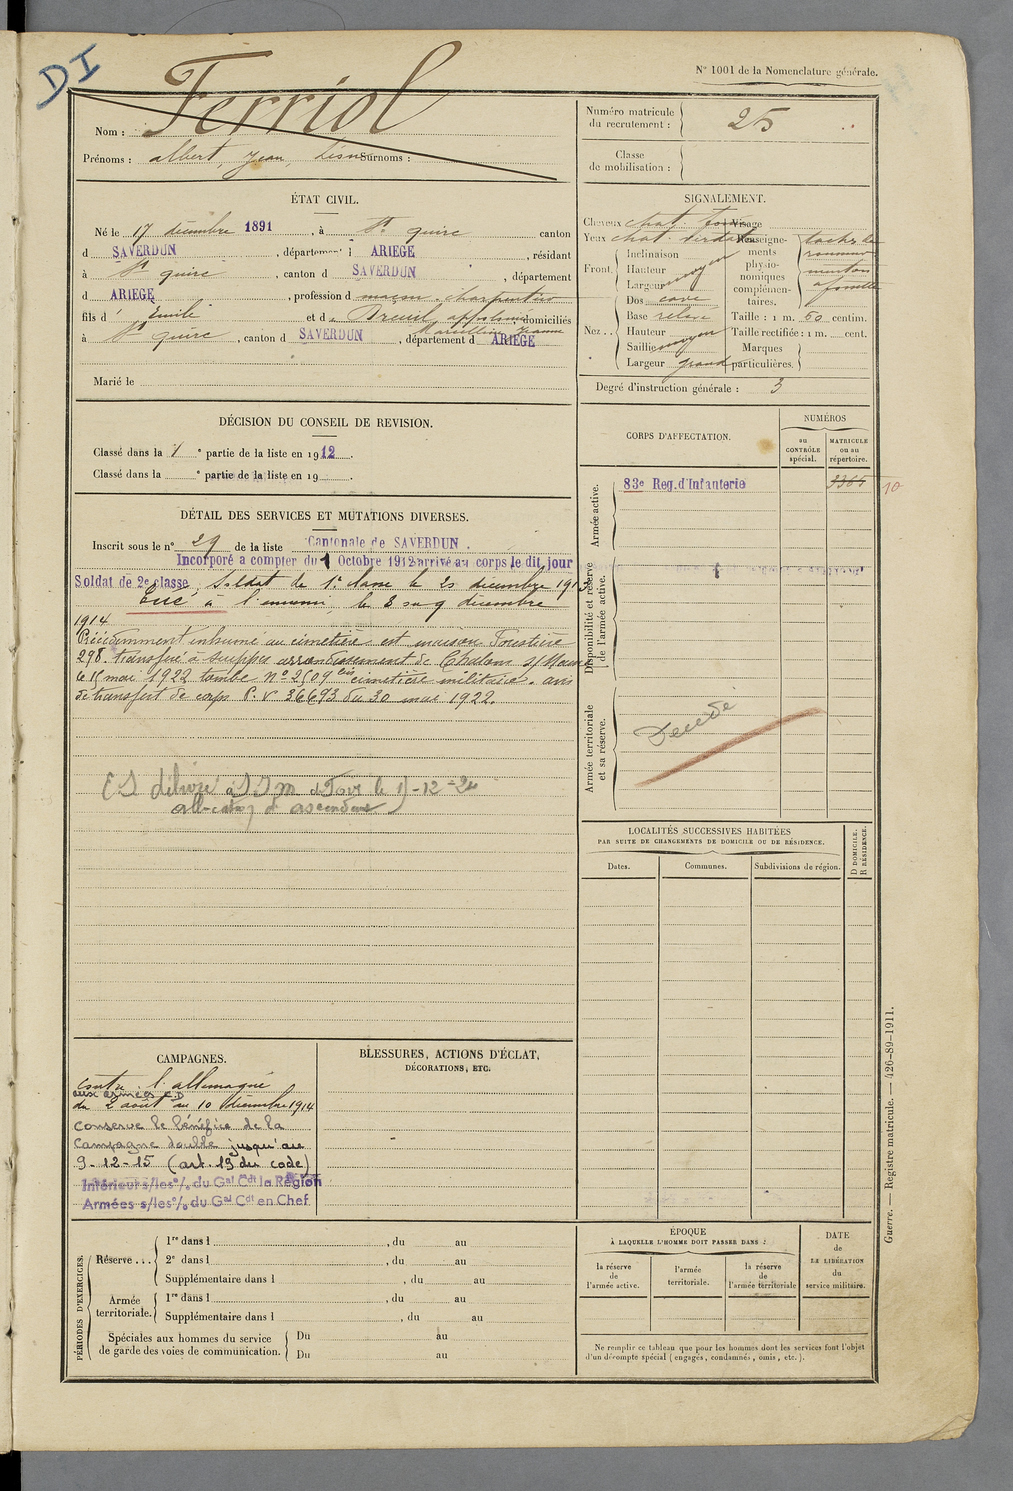 DI
N° 1001 de la Nomenclature générale.
Nom : Ferriol
Prénoms : albert, Jean Surnoms :
Numéro matricule du recrutement : 25
Classe de mobilisation :
ÉTAT CIVIL.
Né le 17 décembre 1891, à St quirc canton
d SAVERDUN, département d ARIEGE, résidant
à St quirc, canton d SAVERDUN, département
d ARIEGE, profession d maçon charpentier
fils d' Emile et d Dreuil appolonie domiciliés
Marcelline Jeanne
à St quirc, canton d SAVERDUN, département d ARIEGE
Marié le
SIGNALEMENT.
Cheveux chat. foncé Visage
Yeux chat. verdatre Renseignements physionomiques complémentaires.
Front. Inclinaison
Hauteur moyen
Largeur
Nez.. Dos cave
Base relevé
Hauteur
Saillie moyen
Largeur grand
menton à fossette
Taille : 1 m. 60 centim.
Taille rectifiée : 1 m. cent.
Marques particulières.
Degré d'instruction générale : 3
DÉCISION DU CONSEIL DE REVISION.
Classé dans la 1e partie de la liste en 1912.
Classé dans la e partie de la liste en 19 .
DÉTAIL DES SERVICES ET MUTATIONS DIVERSES.
Inscrit sous le n° 29 de la liste Cantonale de SAVERDUN.
Incorporé a compter du 1 Octobre 1912 arrivé au corps le dit jour
Soldat de 2e classe, Soldat de 1e classe le 21 décembre 1913
Tué à l'ennemi le 8 ou 9 décembre
1914
Précédemment inhumé au cimetière est maison Forestière
298. transféré à Suippes arrondissement de Chalons s/ Marne
le 15 mai 1922 tombe N° 2509 cimetière militaire. avis
de transfert de corps P. V 36693 du 30 mai 1922.
délivré à de Foix le 11-12-24
allocation d'ascendant
CORPS D'AFFECTATION.
NUMÉROS
au CONTRÔLE spécial.
MATRICULE ou au répertoire.
Armée active.
83e Reg. d'Infanterie 3365 10
Disponibilité et réserve de l'armée active.
Armée territoriale et sa réserve.
Décédé
LOCALITÉS SUCCESSIVES HABITÉES
PAR SUITE DE CHANGEMENTS DE DOMICILE OU DE RÉSIDENCE.
D DOMICILE. R RÉSIDENCE.
Dates. Communes. Subdivisions de région.
CAMPAGNES.
contre l'allemagne
aux armées C.D
du 2 août au 10 décembre 1914
conserve le bénéfice de la
campagne double jusqu'au
9-12-15 (art. 19 du code)
Intérieur s/les o/. du Gal Cdt la Région
Armées s/les o/. du Gal Cdt en Chef
BLESSURES, ACTIONS D'ÉCLAT,
DÉCORATIONS, ETC.
PÉRIODES D'EXERCICES.
Réserve... 1re dans l , du au
2e dans l , du au
Supplémentaire dans l , du au
Armée territoriale. 1re dans l , du au
Supplémentaire dans l , du au
Spéciales aux hommes du service
de garde des voies de communication. Du au
Du au
ÉPOQUE
À LAQUELLE L'HOMME DOIT PASSER DANS :
la réserve de l'armée active.
l'armée territoriale.
la réserve de l'armée territoriale
DATE de LA LIBÉRATION du service militaire.
Ne remplir ce tableau que pour les hommes dont les services font l'objet
d'un décompte spécial (engagés, condamnés, omis, etc.).
Guerre. — Registre matricule. — 426-89-1911.